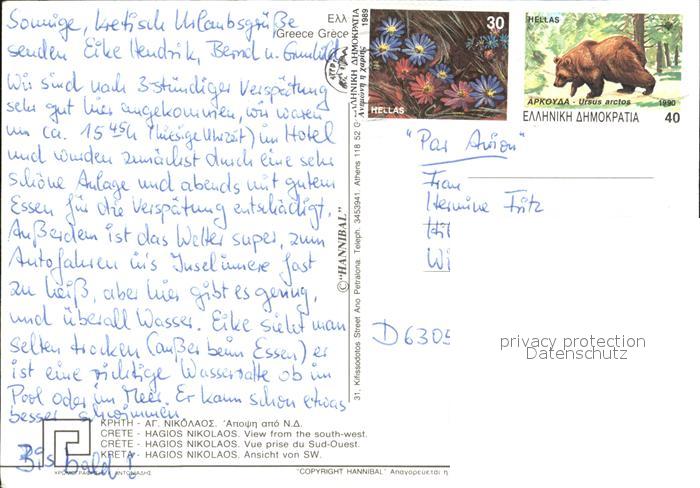 Sonnige, kretisch Urlaubsgrüße
senden Eike Hendrik, Bernd u. Gunhild
Wir sind nach 3-stündiger Verspätung
sehr gut hier angekommen, wir waren
um ca. 15 45h (hiesige Uhrzeit) im Hotel
und wurden zunächst durch eine sehr
schöne Anlage und abends mit gutem
Essen für die Verspätung entschädigt.
Außerdem ist das Wetter super, zum
Autofahren in's Inselinnere fast
zu heiß, aber hier gibt es genug,
und überall Wasser. Eike sieht man
selten trocken (außer beim Essen) er
ist eine richtige Wasserratte ob im
Pool oder im Meer. Er kann schon etwas
besser schwimmen.
Bis bald!
Ελλ
Greece Grèce
1989
30
ΕΛΛΗΝΙΚΗ ΔΗΜΟΚΡΑΤΙΑ
HELLAS
HELLAS
ΑΡΚΟΥΔΑ - Ursus arctos
1990
ΕΛΛΗΝΙΚΗ ΔΗΜΟΚΡΑΤΙΑ
40
"Par Avion"
Frau
Hermine Fritz
D 6305
privacy protection
Datenschutz
©"HANNIBAL"
31, Kifissodotos Street Ano Petralona. Teleph. 3453941. Athens 118 52
ΚΡΗΤΗ - ΑΓ. ΝΙΚΟΛΑΟΣ. Ἄποψη ἀπό Ν.Δ.
CRETE - HAGIOS NIKOLAOS. View from the south-west.
CRETE - HAGIOS NIKOLAOS. Vue prise du Sud-Ouest.
KRETA - HAGIOS NIKOLAOS. Ansicht von SW.
"COPYRIGHT HANNIBAL" Ἀπαγορεύεται ἡ